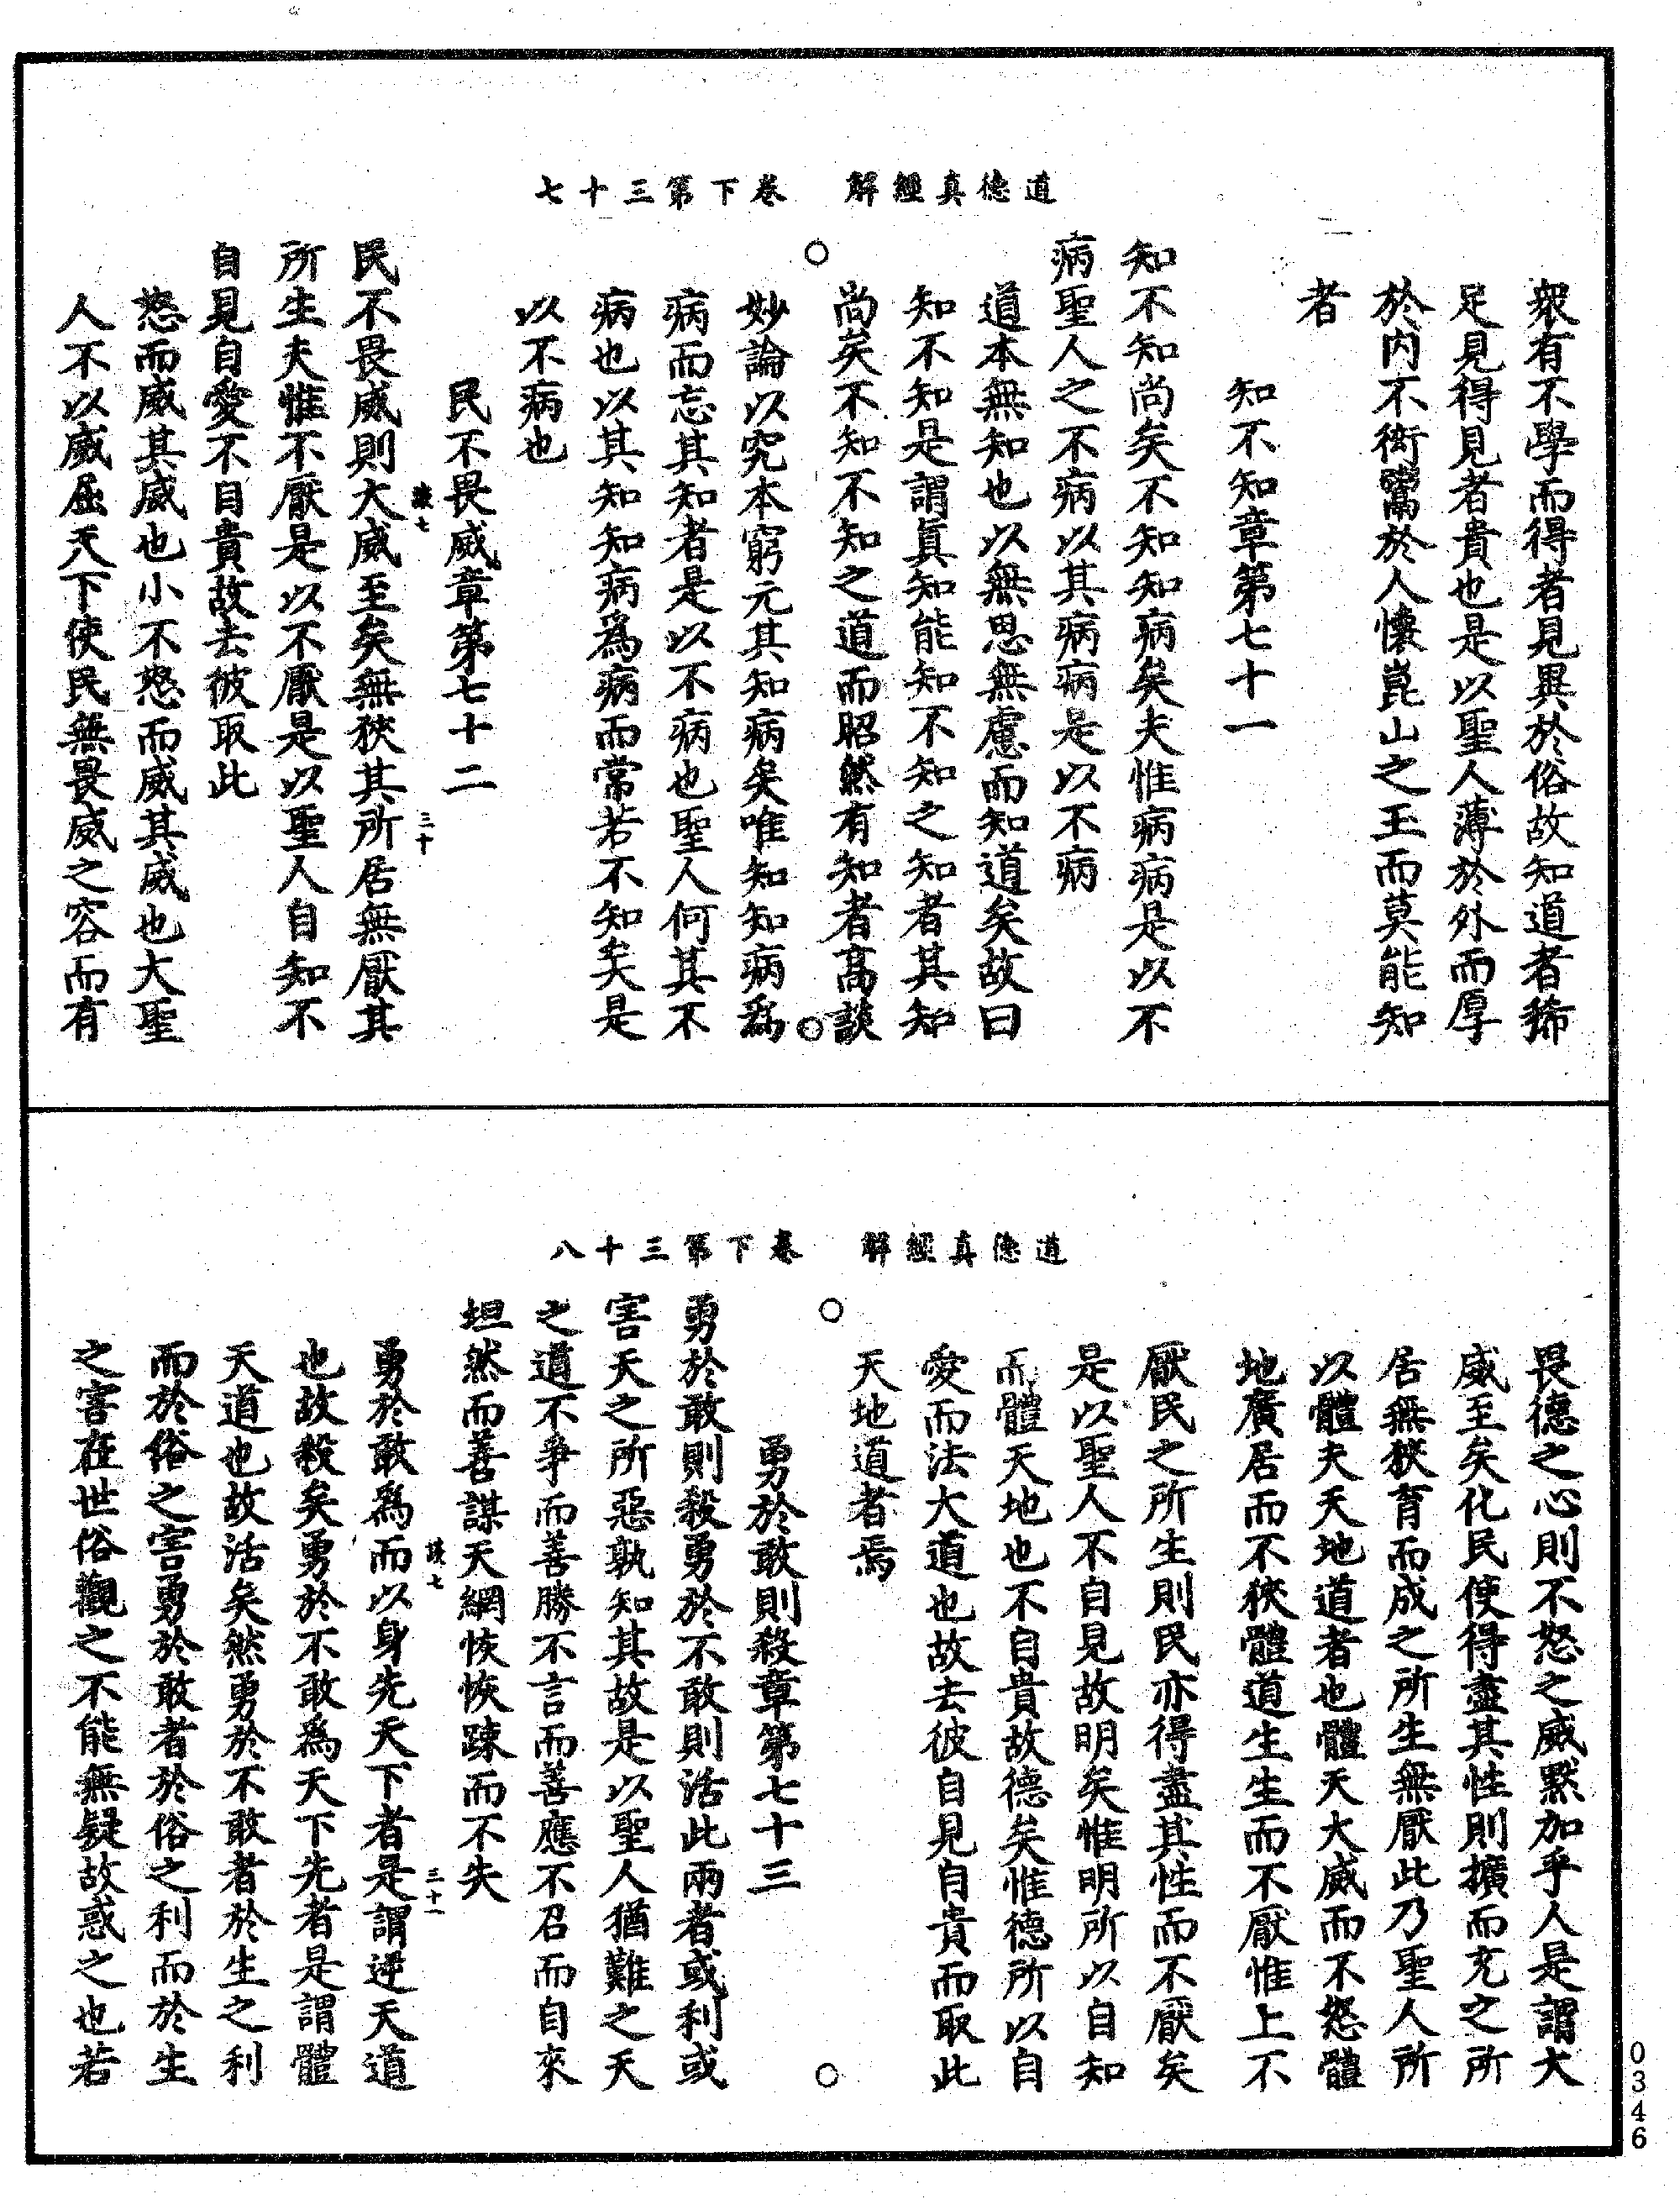 道德真經解　卷下第三十七
衆有不學而得者見異於俗故知道者稀
足見得見者貴也是以聖人薄於外而厚
於内不衒鬻於人懷崑山之玉而莫能知
者
知不知章第七十一
知不知尚矣不知知病矣夫惟病病是以不
病聖人之不病以其病病是以不病
道本無知也以無思無慮而知道矣故曰
知不知是謂真知能知不知之知者其知
尚矣不知不知之道而昭然有知者高談
妙論以究本窮元其知病矣唯知知病爲
病而忘其知者是以不病也聖人何其不
病也以其知知病爲病而常若不知矣是
以不病也
民不畏威章第七十二
民不畏威則大威至矣無狹其所居無厭其
所生夫惟不厭是以不厭是以聖人自知不
自見自愛不自貴故去彼取此
怒而威其威也小不怒而威其威也大聖
人不以威屈天下使民無畏威之容而有
三十
道德真經解　卷下第三十八
畏德之心則不怒之威默加乎人是謂大
威至矣化民使得盡其性則擴而充之所
居無狹育而成之所生無厭此乃聖人所
以體夫天地道者也體天大威而不怒體
地廣居而不狹體道生生而不厭惟上不
厭民之所生則民亦得盡其性而不厭矣
是以聖人不自見故明矣惟明所以自知
而體天地也不自貴故德矣惟德所以自
愛而法大道也故去彼自見自貴而取此
天地道者焉
勇於敢則殺章第七十三
勇於敢則殺勇於不敢則活此兩者或利或
害天之所惡孰知其故是以聖人猶難之天
之道不爭而善勝不言而善應不召而自來
坦然而善謀天網恢恢踈而不失
勇於敢爲而以身先天下者是謂逆天道
也故殺矣勇於不敢爲天下先者是謂體
天道也故活矣然勇於不敢者於生之利
而於俗之害勇於敢者於俗之利而於生
之害在世俗觀之不能無疑故惑之也若
三十一
0346